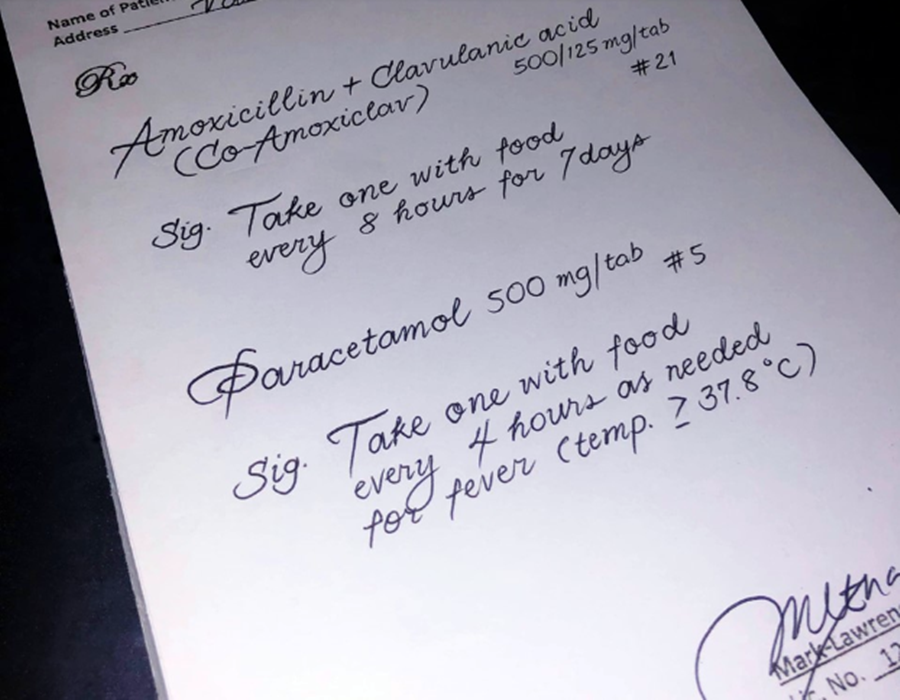 Name of Patient
Address
Rx
Amoxicillin + Clavulanic acid
(Co-Amoxiclav)
500/125 mg/tab
#21
Sig. Take one with food
every 8 hours for 7 days
Paracetamol 500 mg/tab #5
Sig. Take one with food
every 4 hours as needed
for fever (temp. ≥ 37.8°C)
Mark-Lawren
No. 12